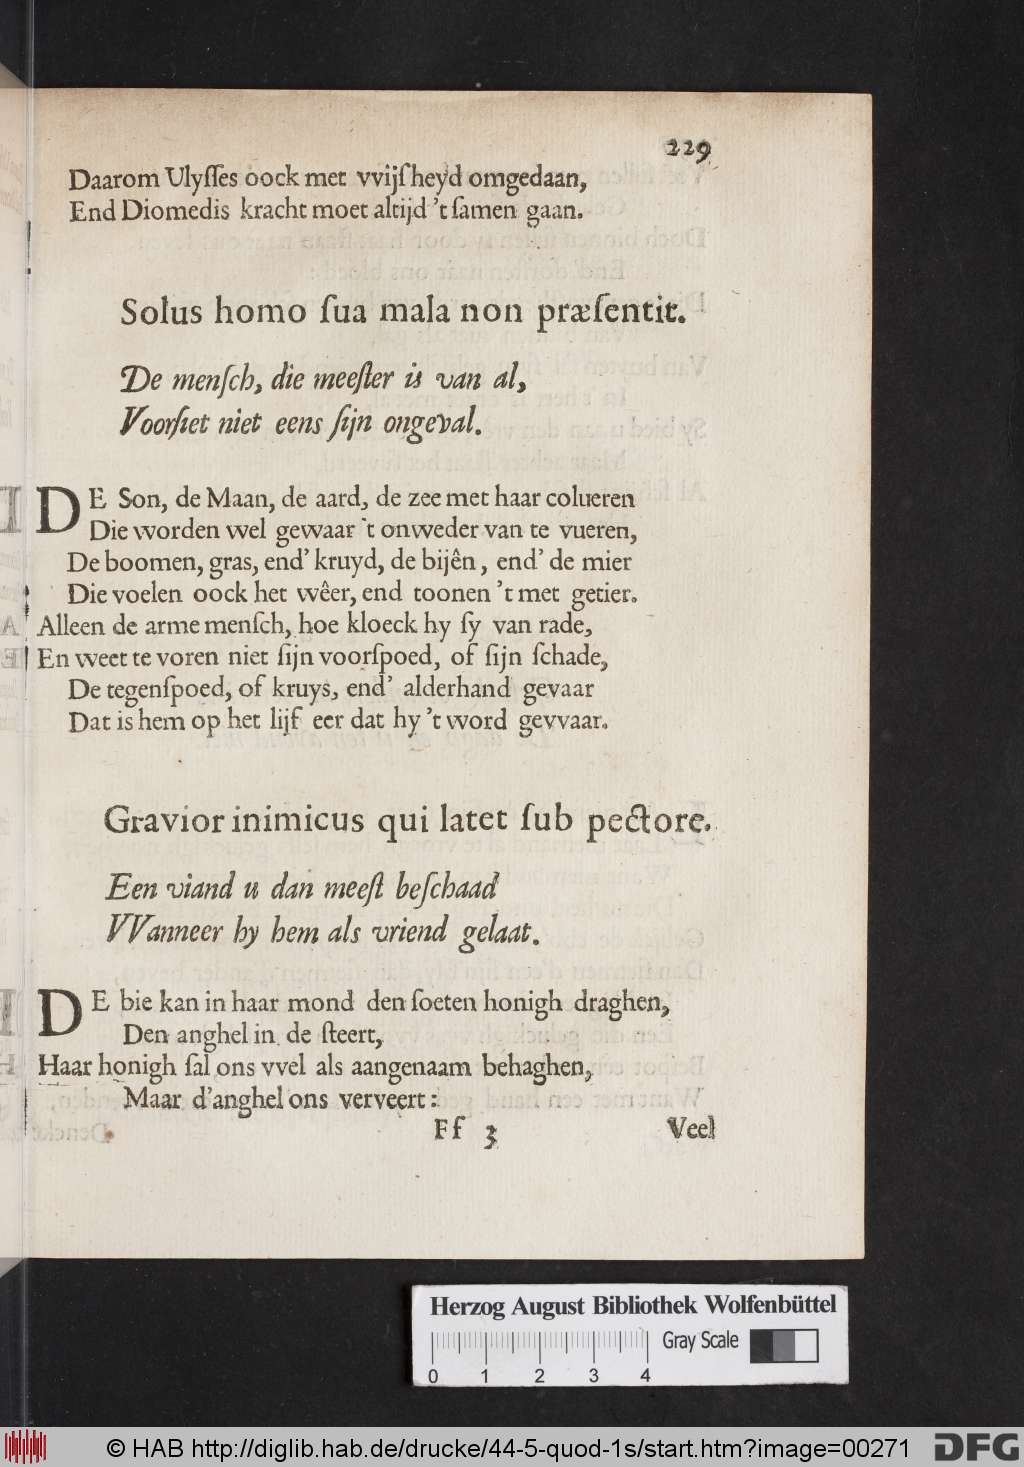 229
Daarom Ulyſſes oock met vvijſheyd omgedaan,
End Diomedis kracht moet altijd 't ſamen gaan.
Solus homo ſua mala non præſentit.
De menſch, die meeſter is van al,
Voorſiet niet eens ſijn ongeval.
DE Son, de Maan, de aard, de zee met haar colueren
Die worden wel gewaar 't onweder van te vueren,
De boomen, gras, end' kruyd, de bijên, end' de mier
Die voelen oock het wêer, end toonen 't met getier.
Alleen de arme menſch, hoe kloeck hy ſy van rade,
En weet te voren niet ſijn voorſpoed, of ſijn ſchade,
De tegenſpoed, of kruys, end' alderhand gevaar
Dat is hem op het lijf eer dat hy 't word gevvaar.
Gravior inimicus qui latet ſub pectore.
Een viand u dan meeſt beſchaad
VVanneer hy hem als vriend gelaat.
DE bie kan in haar mond den ſoeten honigh draghen,
Den anghel in de ſteert,
Haar honigh ſal ons vvel als aangenaam behaghen,
Maar d'anghel ons verveert:
Ff 3 Veel
Herzog August Bibliothek Wolfenbüttel
Gray Scale
0 1 2 3 4
© HAB http://diglib.hab.de/drucke/44-5-quod-1s/start.htm?image=00271
DFG